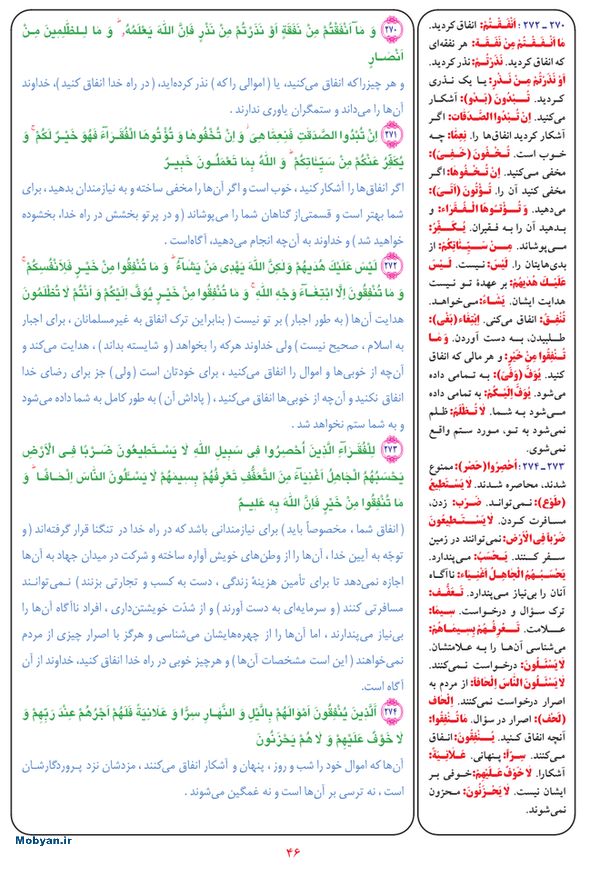 ۲۷۰ ـ ۲۷۲ : أَنْفَقْتُمْ: انفاق کردید.
مَا أَنْفَقْتُمْ مِنْ نَفَقَةٍ: هر نفقه‌ای
که انفاق کردید. نَذَرْتُمْ: نذر کردید.
أَوْ نَذَرْتُمْ مِنْ نَذْرٍ: یا یک نذری
کردید. تُبْدُونَ (بَدْو): آشکار
می‌کنید. إِنْ تُبْدُوا الصَّدَقَاتِ: اگر
آشکار کردید انفاق‌ها را. نِعِمَّا: چه
خوب است. تُخْفُونَ (خَفِیَ):
مخفی می‌کنید. إِنْ تُخْفُوهَا: اگر
مخفی کنید آن را. تُؤْتُونَ (أَتَیَ):
می‌دهید. وَ تُؤْتُوهَا الْفُقَرَاءَ: و
بدهید آن را به فقیران. یُکَفِّرُ:
می‌پوشاند. مِنْ سَیِّئَاتِکُمْ: از
بدی‌هایتان را. لَیْسَ: نیست. لَیْسَ
عَلَیْکَ هُدَیهُمْ: بر عهدهٔ تو نیست
هدایت ایشان. یَشَاءُ: می‌خواهد.
تُنْفِقُ: انفاق می‌کنی. اِبْتِغَاء (بَغَی):
طلبیدن، به دست آوردن. وَ مَا
تُنْفِقُوا مِنْ خَیْرٍ: و هر مالی که انفاق
کنید. یُوَفَّ (وَفَیَ): به تمامی داده
می‌شود. یُوَفَّ إِلَیْکُمْ: به تمامی داده
می‌شود به شما. لَا تُظْلَمُ: ظلم
نمی‌شود به تو، مورد ستم واقع
نمی‌شوی.
۲۷۳ ـ ۲۷۴ : أُحْصِرُوا (حَصْر): ممنوع
شدند، محاصره شدند. لَا یَسْتَطِیعُ
(طَوْع): نمی‌تواند. ضَرْب: زدن،
مسافرت کردن. لَا یَسْتَطِیعُونَ
ضَرْبًا فِی الْأَرْضِ: نمی‌توانند در زمین
سفر کنند. یَحْسَبُ: می‌پندارد.
یَحْسَبُهُمُ الْجَاهِلُ أَغْنِیَاءَ: ناآگاه
آنان را بی‌نیاز می‌پندارد. تَعَفُّف:
ترک سؤال و درخواست. سِیمَا:
علامت. تَعْرِفُهُمْ بِسِیمَاهُمْ:
می‌شناسی آن‌ها را به علامتشان.
لَا یَسْئَلُونَ: درخواست نمی‌کنند.
لَا یَسْئَلُونَ النَّاسَ إِلْحَافًا: از مردم به
اصرار درخواست نمی‌کنند. إِلْحَاف
(لَحَف): اصرار در سؤال. مَا تُنْفِقُوا:
آنچه انفاق کنید. یُنْفِقُونَ: انفاق
می‌کنند. سِرّاً: پنهانی. عَلَانِیَةً:
آشکارا. لَا خَوْفٌ عَلَیْهِمْ: خوفی بر
ایشان نیست. لَا یَحْزَنُونَ: محزون
نمی‌شوند.
۲۷۰ وَ مَا أَنْفَقْتُمْ مِنْ نَفَقَةٍ أَوْ نَذَرْتُمْ مِنْ نَذْرٍ فَإِنَّ اللهَ یَعْلَمُهُ وَ مَا لِلظّٰلِمِینَ مِنْ
أَنْصَارٍ
و هر چیزراکه انفاق می‌کنید، یا ( اموالی راکه ) نذر کرده‌اید، ( در راه خدا انفاق کنید )، خداوند
آن‌ها را می‌داند و ستمگران یاوری ندارند .
۲۷۱ إِنْ تُبْدُوا الصَّدَقٰتِ فَنِعِمَّا هِیَ وَ إِنْ تُخْفُوهَا وَ تُؤْتُوهَا الْفُقَرَاءَ فَهُوَ خَیْرٌ لَکُمْ وَ
یُکَفِّرُ عَنْکُمْ مِنْ سَیِّئَاتِکُمْ وَ اللهُ بِمَا تَعْمَلُونَ خَبِیرٌ
اگر انفاق‌ها را آشکار کنید ، خوب است و اگر آن‌ها را مخفی ساخته و به نیازمندان بدهید ، برای
شما بهتر است و قسمتی‌از گناهان شما را می‌پوشاند ( و در پرتو بخشش در راه خدا، بخشوده
خواهید شد ) و خداوند به آن‌چه انجام می‌دهید، آگاه‌است .
۲۷۲ لَیْسَ عَلَیْکَ هُدَیهُمْ وَلٰکِنَّ اللهَ یَهْدِی مَنْ یَشَاءُ وَ مَا تُنْفِقُوا مِنْ خَیْرٍ فَلِأَنْفُسِکُمْ
وَ مَا تُنْفِقُونَ إِلَّا ابْتِغَاءَ وَجْهِ اللهِ وَ مَا تُنْفِقُوا مِنْ خَیْرٍ یُوَفَّ إِلَیْکُمْ وَ أَنْتُمْ لَا تُظْلَمُونَ
هدایت آن‌ها ( به طور اجبار ) بر تو نیست ( بنابراین ترک انفاق به غیرمسلمانان ، برای اجبار
به اسلام ، صحیح نیست ) ولی خداوند هرکه را بخواهد ( و شایسته بداند ) ، هدایت می‌کند و
آن‌چه از خوبی‌ها و اموال را انفاق می‌کنید ، برای خودتان است ( ولی ) جز برای رضای خدا
انفاق نکنید و آن‌چه از خوبی‌ها انفاق می‌کنید ، ( پاداش آن ) به طور کامل به شما داده می‌شود
و به شما ستم نخواهد شد .
۲۷۳ لِلْفُقَرَاءِ الَّذِینَ أُحْصِرُوا فِی سَبِیلِ اللهِ لَا یَسْتَطِیعُونَ ضَرْبًا فِی الْأَرْضِ
یَحْسَبُهُمُ الْجَاهِلُ أَغْنِیَاءَ مِنَ التَّعَفُّفِ تَعْرِفُهُمْ بِسِیمٰهُمْ لَا یَسْئَلُونَ النَّاسَ إِلْحَافًا وَ
مَا تُنْفِقُوا مِنْ خَیْرٍ فَإِنَّ اللهَ بِهِ عَلِیمٌ
( انفاق شما ، مخصوصاً باید ) برای نیازمندانی باشد که در راه خدا در تنگنا قرار گرفته‌اند ( و
توجّه به آیین خدا ، آن‌ها را از وطن‌های خویش آواره ساخته و شرکت در میدان جهاد به آن‌ها
اجازه نمی‌دهد تا برای تأمین هزینهٔ زندگی ، دست به کسب و تجارتی بزنند ) نمی‌توانند
مسافرتی کنند ( و سرمایه‌ای به دست آورند ) و از شدّت خویشتن‌داری ، افراد ناآگاه آن‌ها را
بی‌نیاز می‌پندارند ، اما آن‌ها را از چهره‌هایشان می‌شناسی و هرگز با اصرار چیزی از مردم
نمی‌خواهند ( این است مشخصات آن‌ها ) و هرچیز خوبی در راه خدا انفاق کنید، خداوند از آن
آگاه است .
۲۷۴ أَلَّذِینَ یُنْفِقُونَ أَمْوَالَهُمْ بِالَّیْلِ وَ النَّهَارِ سِرًّا وَ عَلَانِیَةً فَلَهُمْ أَجْرُهُمْ عِنْدَ رَبِّهِمْ وَ
لَا خَوْفٌ عَلَیْهِمْ وَ لَا هُمْ یَحْزَنُونَ
آن‌ها که اموال خود را شب و روز ، پنهان و آشکار انفاق می‌کنند ، مزدشان نزد پروردگارشان
است ، نه ترسی بر آن‌ها است و نه غمگین می‌شوند .
Mobyan.ir
۴۶